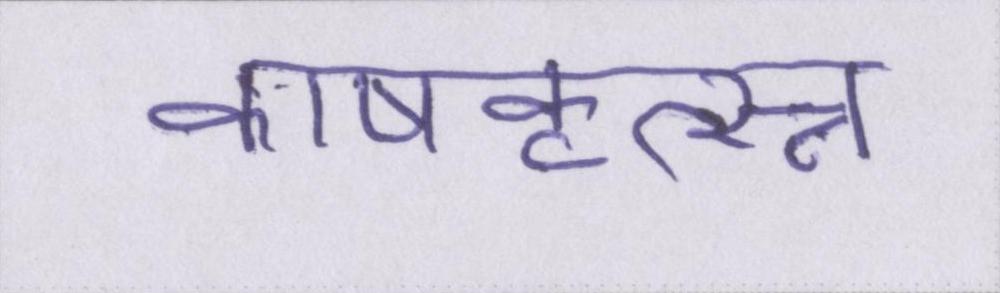 काषकृत्स्न